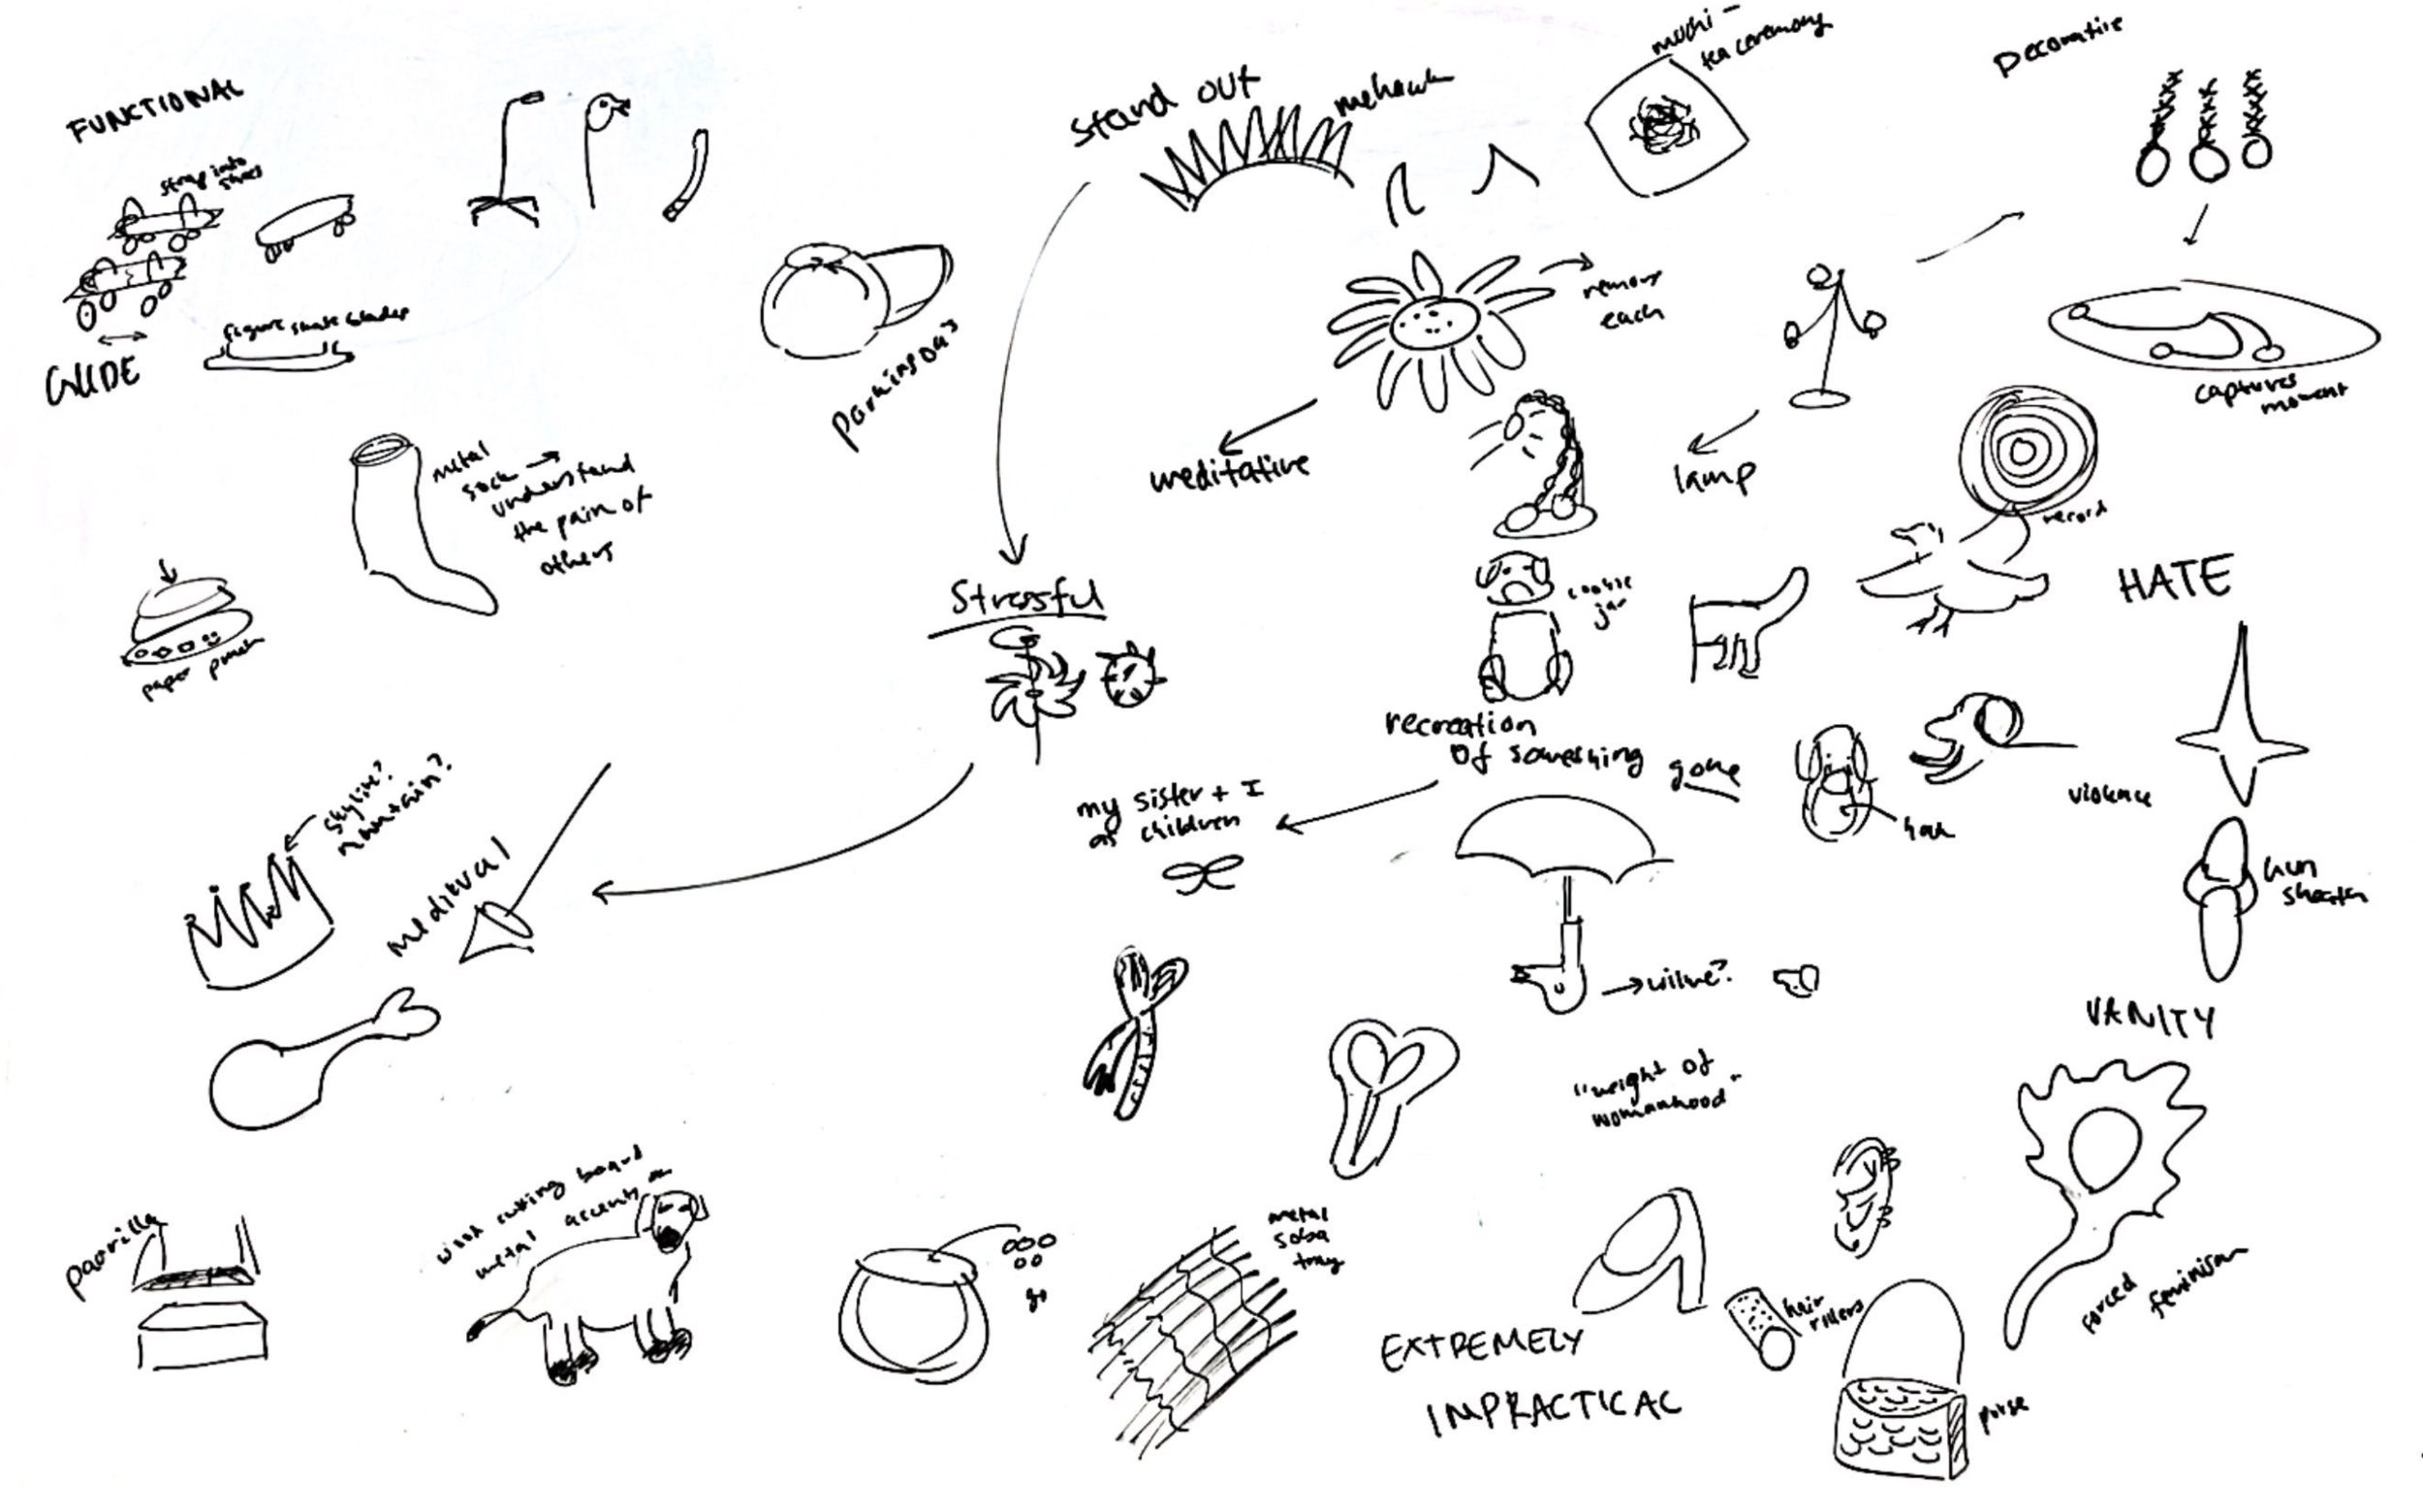 FUNCTIONAL
strap into
shoes
GLIDE
figure skate blades
metal
sock →
understand
the pain of
others
paper punch
stand out
mohawk
mochi -
tea ceremony
Decorative
remove
each
captures
moment
meditative
lamp
record
Stressful
cookie
jar
HATE
recreation
of something gone
my sister + I
as children
violence
skyline?
mountain?
medieval
gun
VANITY
"weight of
womanhood"
wood cutting board
metal accents
parrilla
go
metal
soba
tray
EXTREMELY
IMPRACTICAL
hair
rollers
purse
forced
feminism